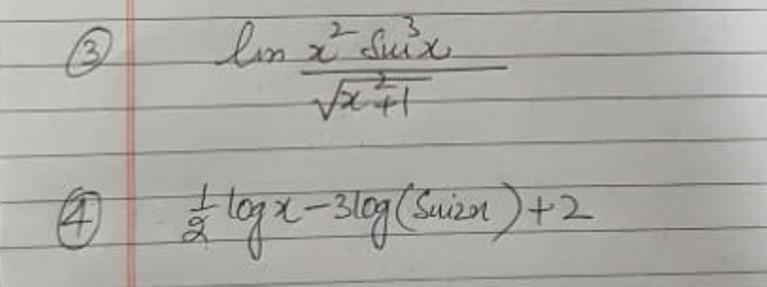 ③ lin x² Sin³x / √x²+1
④ 1/2 log x - 3log(Sin2x) + 2